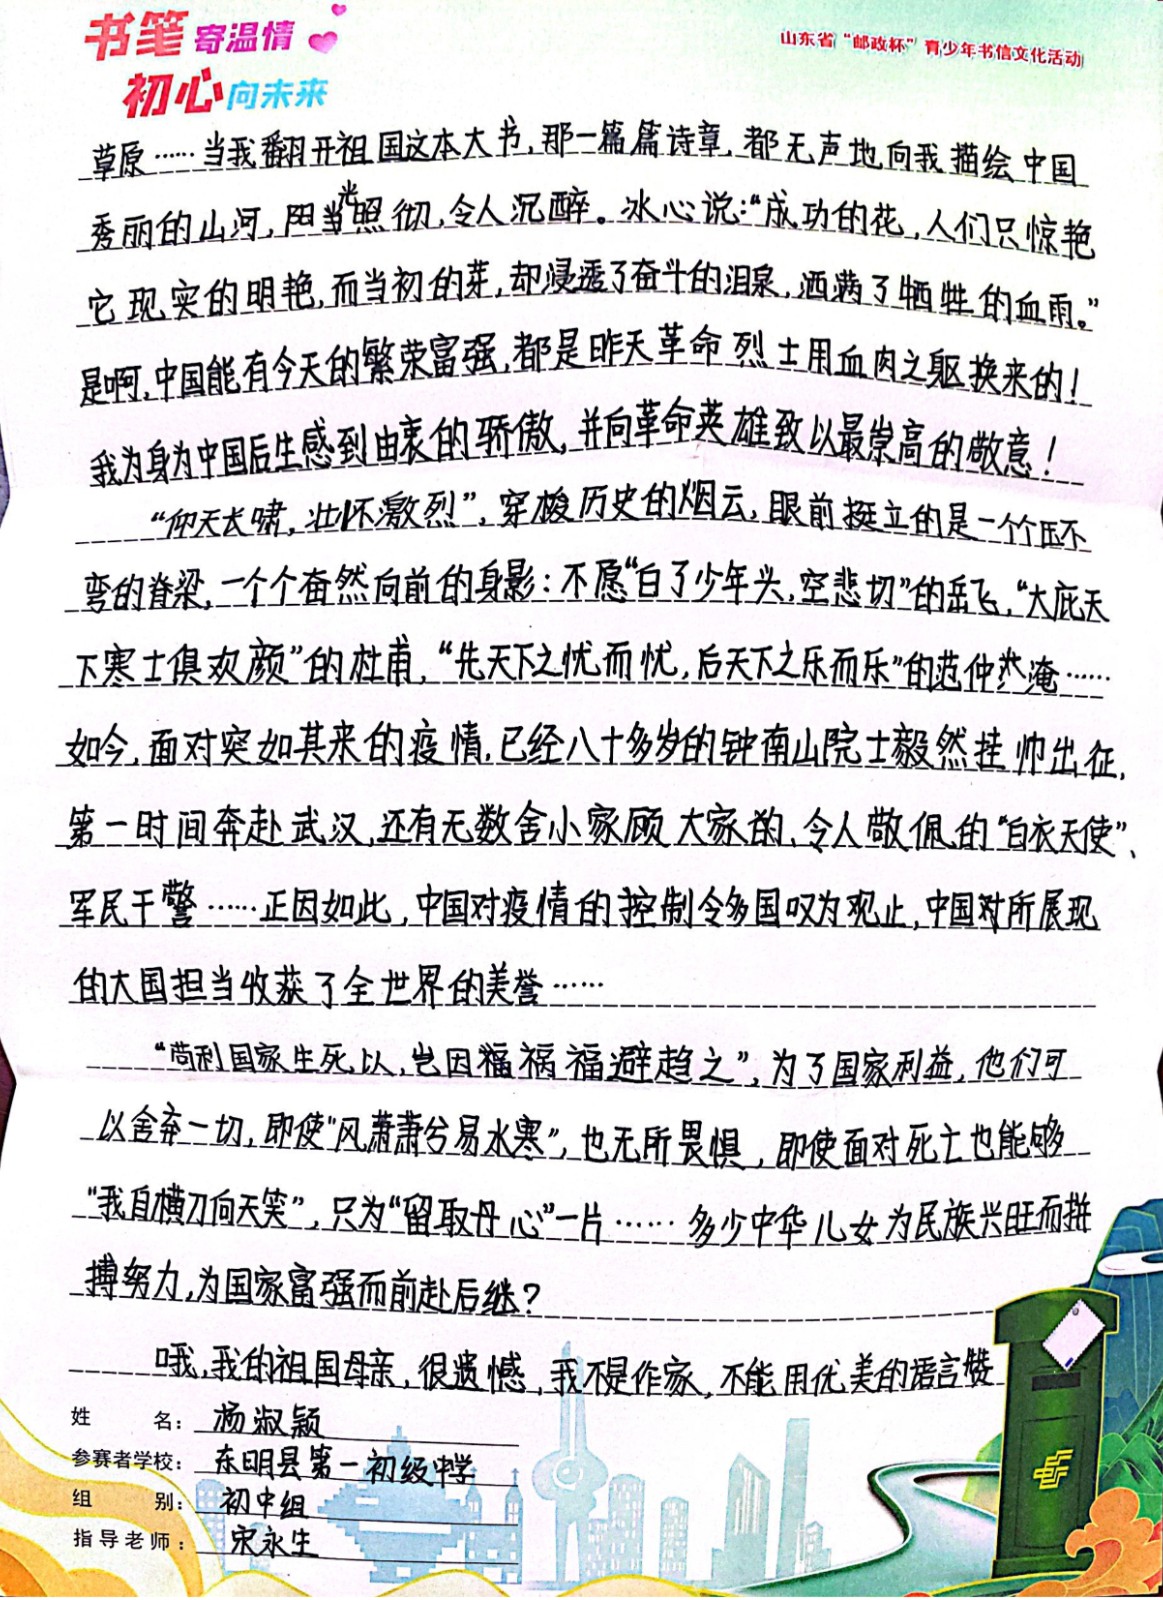 书笔寄温情
初心向未来
山东省“邮政杯”青少年书信文化活动
草原……当我翻开祖国这本大书,那一篇篇诗章,都无声地向我描绘中国
秀丽的山河,阳光照彻,令人沉醉。冰心说:“成功的花,人们只惊艳
它现实的明艳,而当初的芽,却浸透了奋斗的泪泉,洒满了牺牲的血雨。”
是啊,中国能有今天的繁荣富强,都是昨天革命烈士用血肉之躯换来的!
我为身为中国后生感到由衷的骄傲,并向革命英雄致以最崇高的敬意!
“仰天长啸,壮怀激烈”,穿梭历史的烟云,眼前挺立的是一个个压不
弯的脊梁,一个个奋然向前的身影:不愿“白了少年头,空悲切”的岳飞,“大庇天
下寒士俱欢颜”的杜甫,“先天下之忧而忧,后天下之乐而乐”的范仲淹……
如今,面对突如其来的疫情,已经八十多岁的钟南山院士毅然挂帅出征,
第一时间奔赴武汉,还有无数舍小家顾大家的、令人敬佩的“白衣天使”、
军民干警……正因如此,中国对疫情的控制令多国叹为观止,中国对所展现
的大国担当收获了全世界的美誉……
“苟利国家生死以,岂因福祸福避趋之”,为了国家利益,他们可
以舍弃一切,即使“风萧萧兮易水寒”,也无所畏惧,即使面对死亡也能够
“我自横刀向天笑”,只为“留取丹心”一片……多少中华儿女为民族兴旺而拼
搏努力,为国家富强而前赴后继?
哦,我的祖国母亲,很遗憾,我不是作家,不能用优美的语言赞
姓名:杨淑颖
参赛者学校:东明县第一初级中学
组别:初中组
指导老师:宋永生